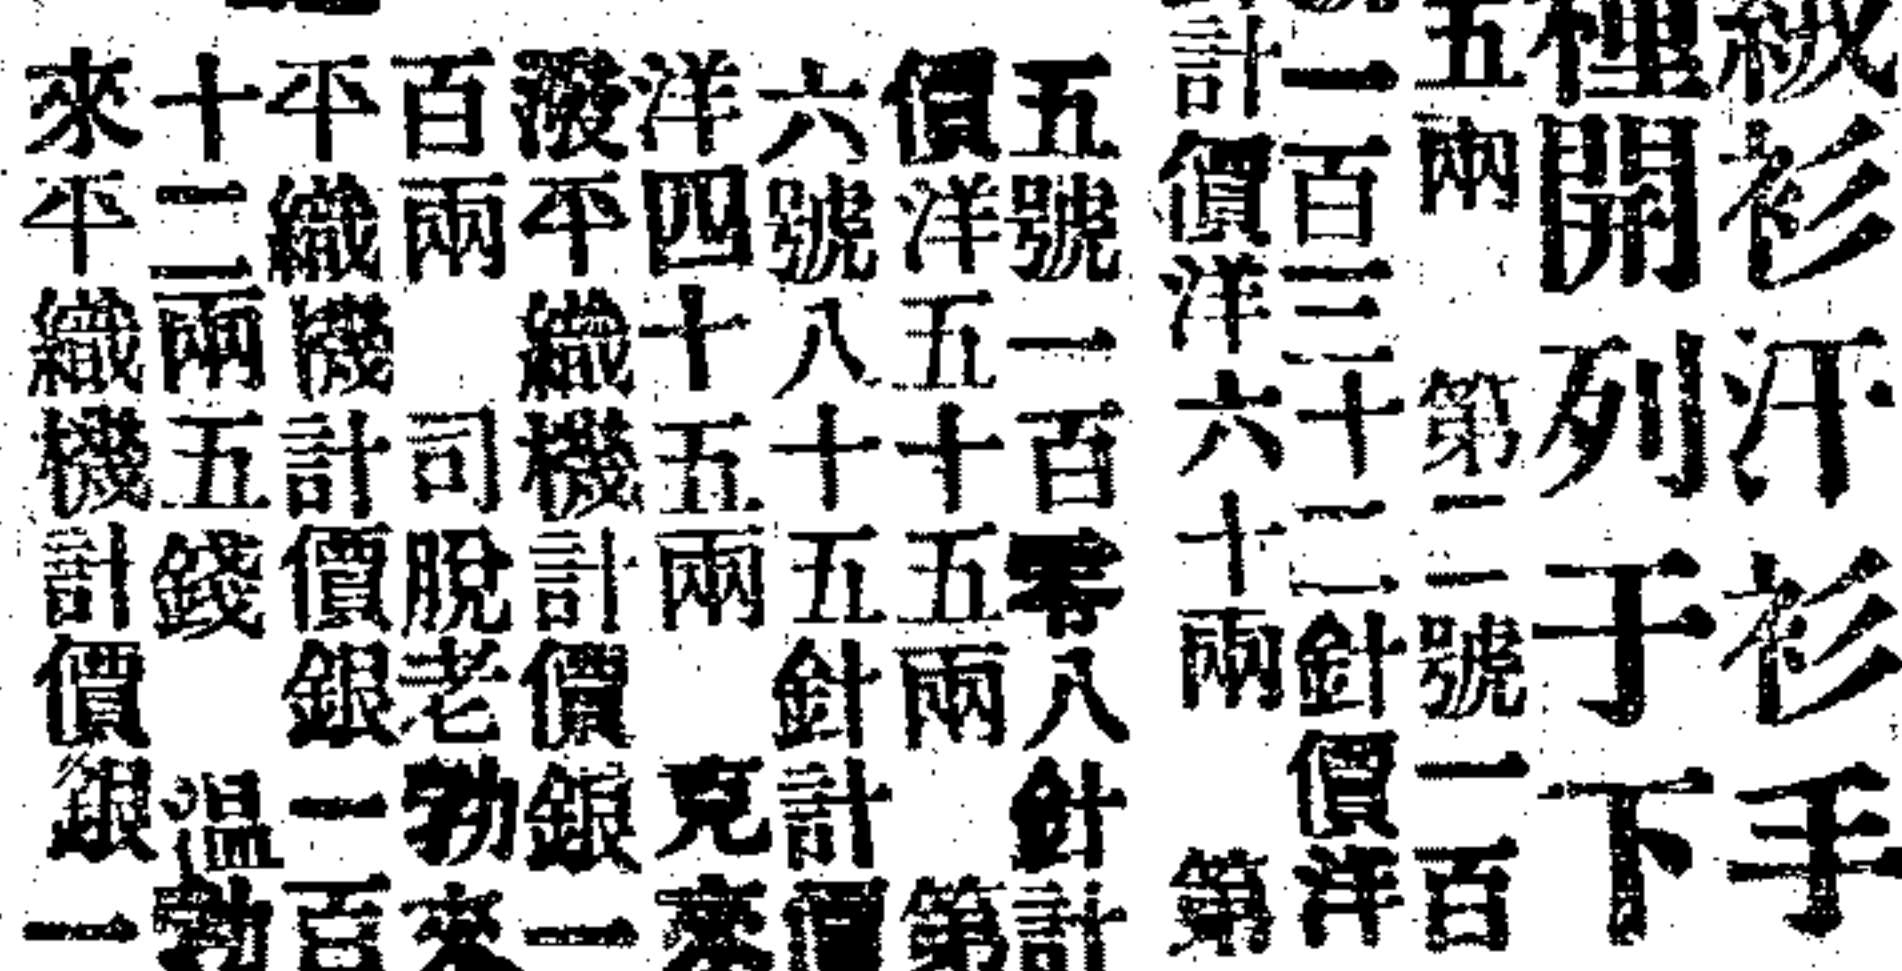 絨衫汗衫手
種開列于下
五兩 第二號一百
一百三十二針價洋
計價洋六十兩 第
五號一百零八針計
價洋五十五兩 第
六號八十五針計價
洋四十五兩 克來
潑平織機計價銀一
百兩 司脫老勃來
平織機計價銀一百
十二兩五錢 溫勃
來平織機計價銀一